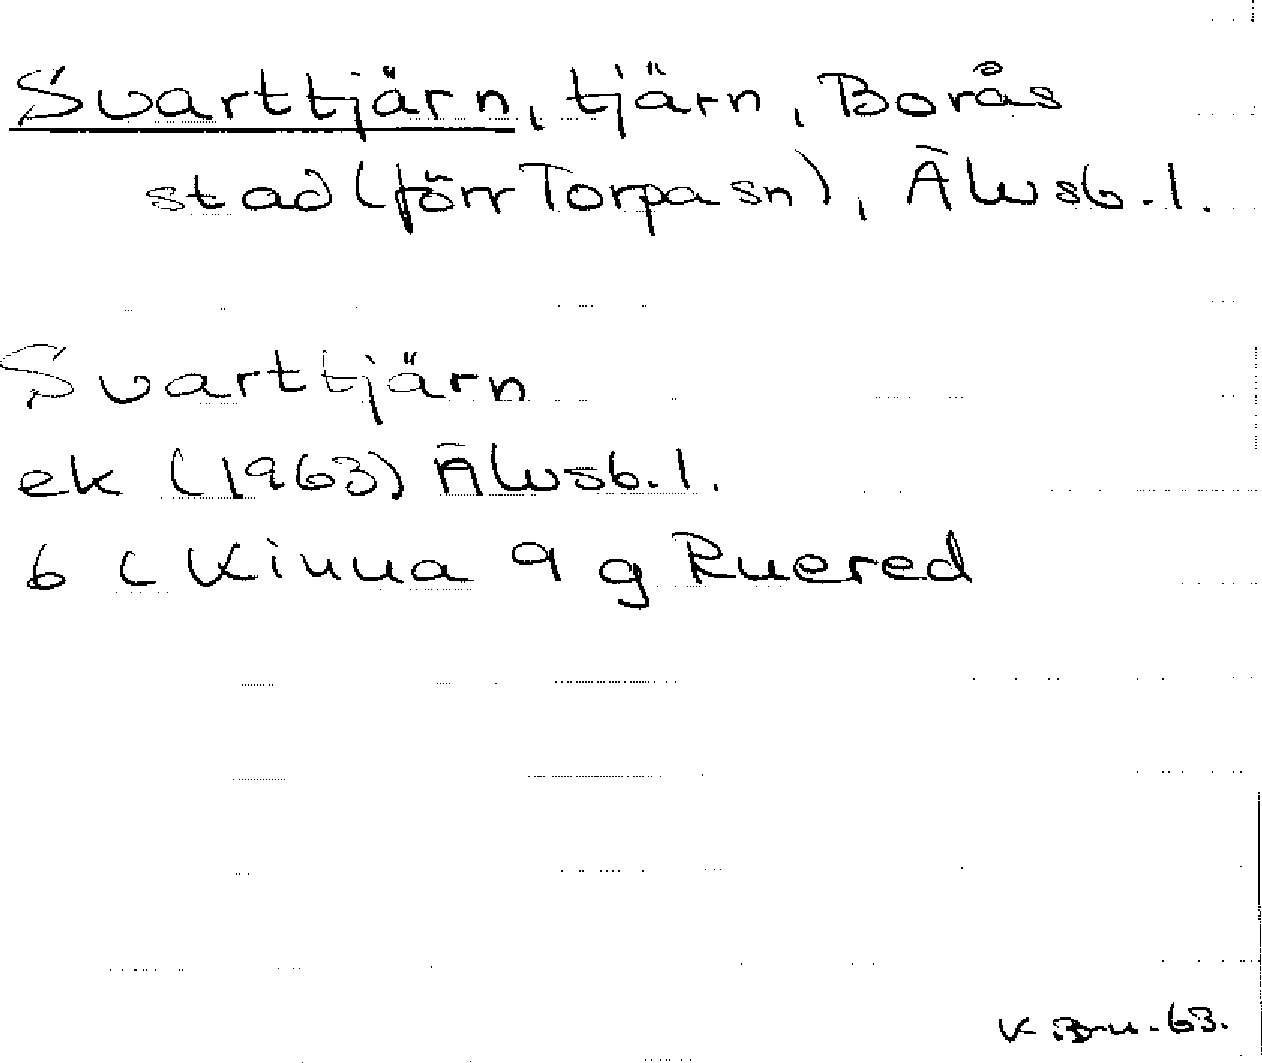 Svarttjärn, tjärn, Borås
stad (förr Torpa sn), Älvsb. l.
Svarttjärn
ek (1963) Älvsb. l.
6 C Kinna 9 g Ruered
63.